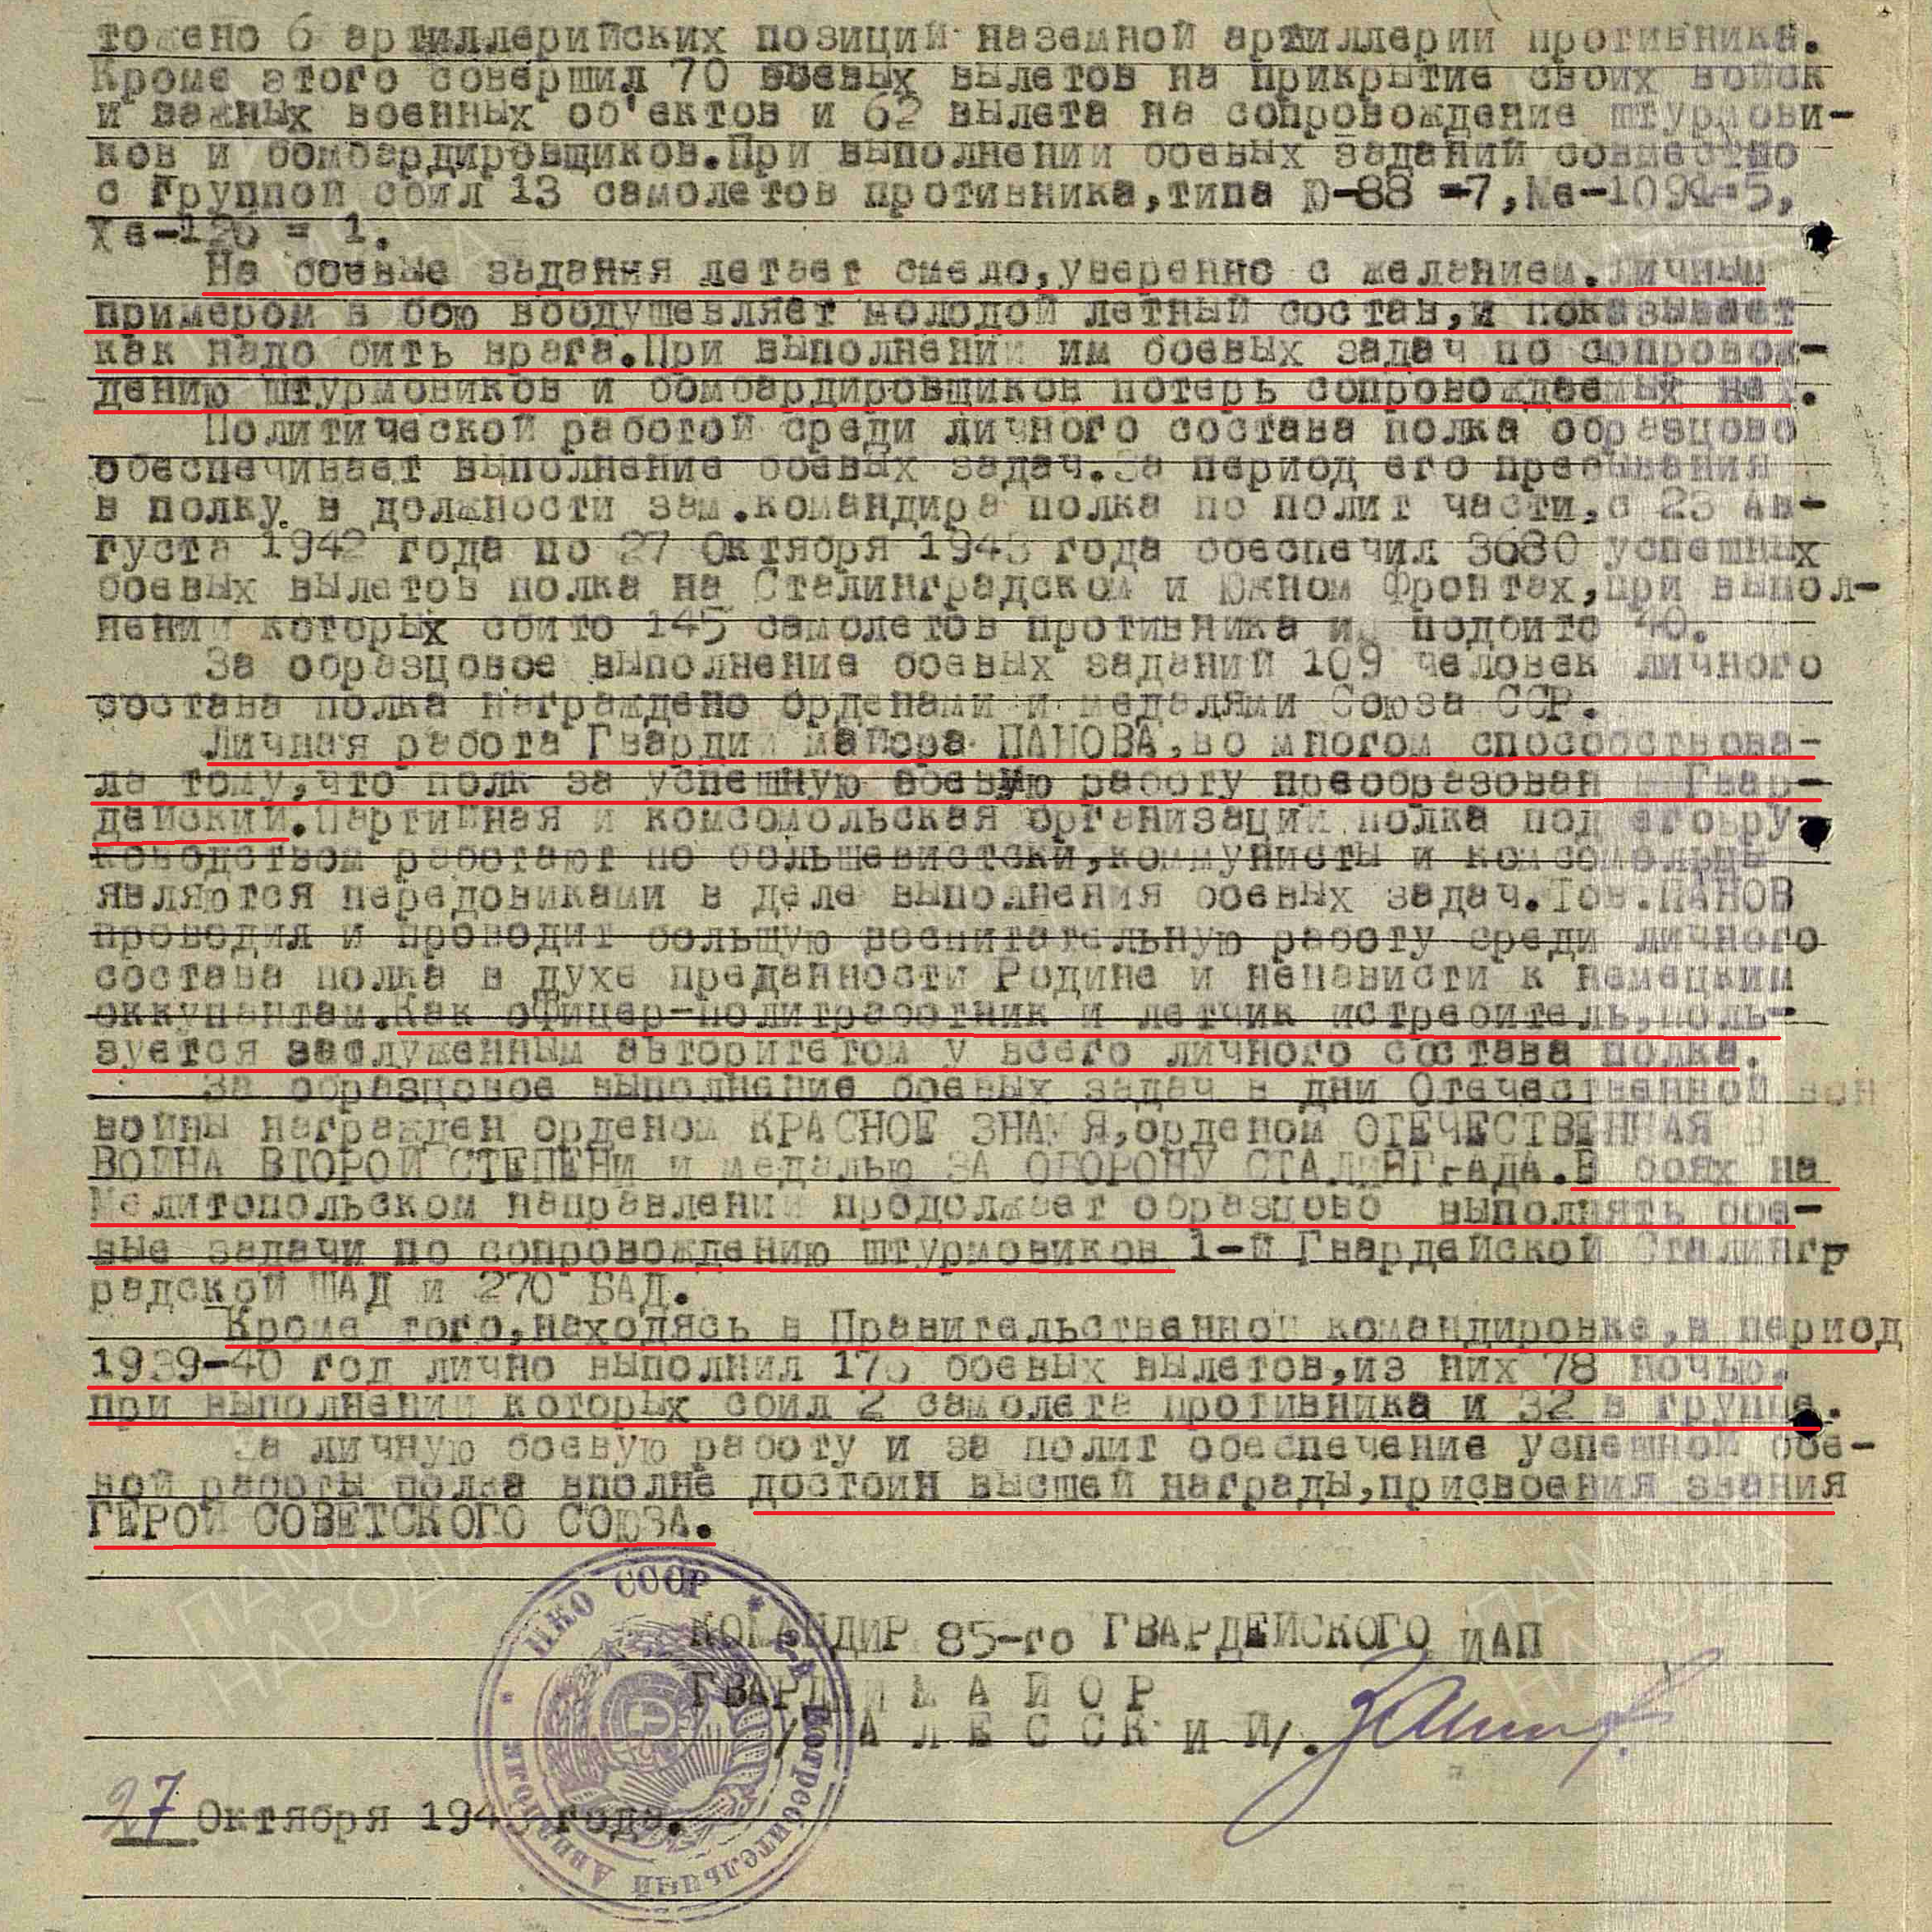 тожено 6 артиллерийских позиций наземной артиллерии противника.
Кроме этого совершил 70 боевых вылетов на прикрытие своих войск
и важных военных об'ектов и 62 вылета на сопровождение штурмови-
ков и бомбардировщиков.При выполнении боевых заданий совместно
с группой сбил 13 самолетов противника,типа Ю-88 =7,Ме-109 =5,
Хе-126 = 1.
На боевые задания летает смело,уверенно с желанием.Личным
примером в бою воодушевляет молодой летный состав,и показывает
как надо бить врага.При выполнении им боевых задач по сопровож-
дению штурмовиков и бомбардировщиков потерь сопровождаемых нет.
Политической работой среди личного состава полка образцово
обеспечивает выполнение боевых задач.За период его пребывания
в полку в должности зам.командира полка по полит части,с 23 Ав-
густа 1942 года по 27 Октября 1943 года обеспечил 3680 успешных
боевых вылетов полка на Сталинградском и Южном Фронтах,при выпол-
нении которых сбито 145 самолетов противника и подбито 40.
За образцовое выполнение боевых заданий 109 человек личного
состава полка награждено орденами и медалями Союза ССР.
Личная работа Гвардии майора ПАНОВА,во многом способствова-
ла тому,что полк за успешную боевую работу преобразован в Гвар-
дейский.Партийная и комсомольская организации полка под его ру-
ководством работают по большевистски,коммунисты и комсомольцы
являются передовиками в деле выполнения боевых задач.Тов.ПАНОВ
проводил и проводит большую воспитательную работу среди личного
состава полка в духе преданности Родине и ненависти к немецким
оккупантам.Как офицер-политработник и летчик истребитель,поль-
зуется заслуженным авторитетом у всего личного состава полка.
За образцовое выполнение боевых задач в дни Отечественной вой
войны награжден орденом КРАСНОЕ ЗНАМЯ,орденом ОТЕЧЕСТВЕННАЯ
ВОЙНА ВТОРОЙ СТЕПЕНИ и медалью ЗА ОБОРОНУ СТАЛИНГРАДА.В боях на
Мелитопольском направлении продолжает образцово выполнять бое-
вые задачи по сопровождению штурмовиков 1-й Гвардейской Сталингр
радской ШАД и 270 БАД.
Кроме того,находясь в Правительственной командировке,в период
1939-40 год лично выполнил 176 боевых вылетов,из них 78 ночью,
при выполнении которых сбил 2 самолета противника и 32 в группе.
За личную боевую работу и за полит обеспечение успешной бое-
вой работы полка вполне достоин высшей награды,присвоения звания
ГЕРОЙ СОВЕТСКОГО СОЮЗА.
КОМАНДИР 85-го ГВАРДЕЙСКОГО ИАП
ГВАРДИИ МАЙОР
/ЗАЛЕССКИЙ/.
27 Октября 194 года.
НКО СССР
Истребительный Авиаполк
ПАМЯТЬ
НАРОДА